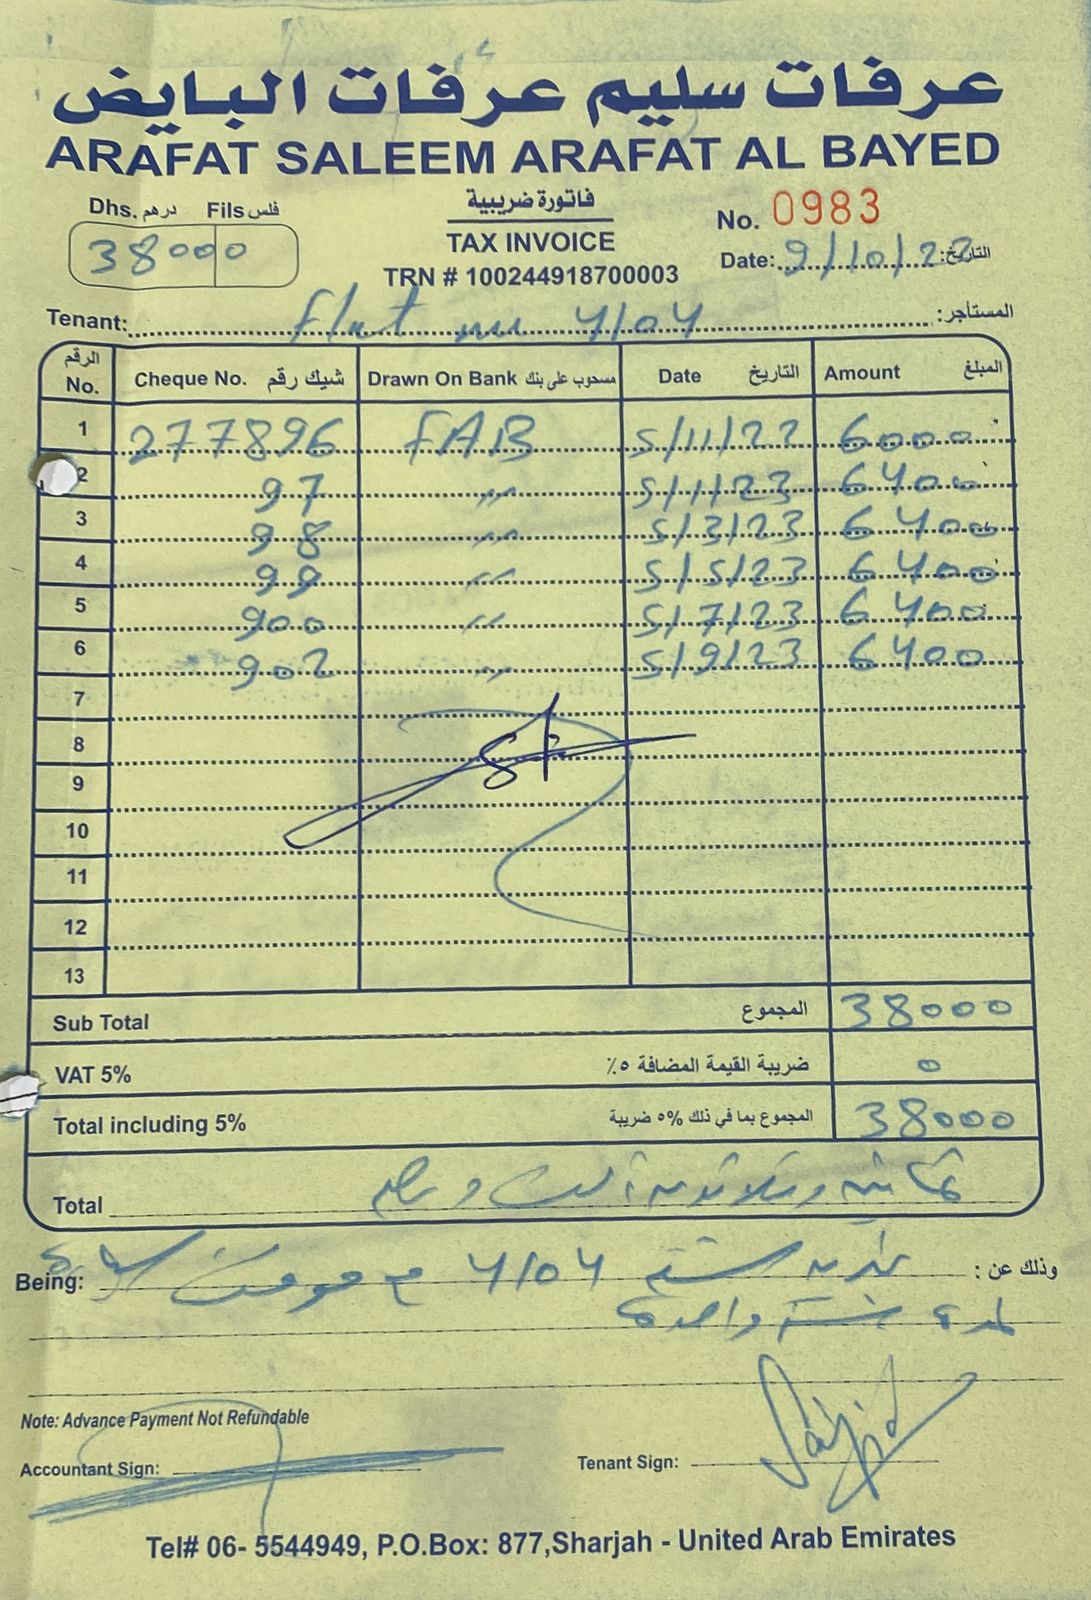 عرفات سليم عرفات البايض
ARAFAT SALEEM ARAFAT AL BAYED
Dhs. درهم Fils فلس
38000 0
فاتورة ضريبية
TAX INVOICE
TRN # 100244918700003
No. 0983
Date: 9/10/22 التاريخ:
Tenant: flat 4/04 المستأجر:
الرقم No. Cheque No. شيك رقم Drawn On Bank مسحوب على بنك Date التاريخ Amount المبلغ
1 277896 FAB 5/11/22 6000
2 97 " 5/1/23 6400
3 98 " 5/3/23 6400
4 99 " 5/5/23 6400
5 900 " 5/7/23 6400
6 902 " 5/9/23 6400
7
8
9
10
11
12
13
Sub Total المجموع 38000
VAT 5% ضريبة القيمة المضافة ٥٪ 0
Total including 5% المجموع بما في ذلك ٥% ضريبة 38000
Total ثمانية وثلاثون ألف درهم
Being: 4/04 وذلك عن :
لمدة سنة واحدة
Note: Advance Payment Not Refundable
Accountant Sign: Tenant Sign:
Tel# 06- 5544949, P.O.Box: 877,Sharjah - United Arab Emirates